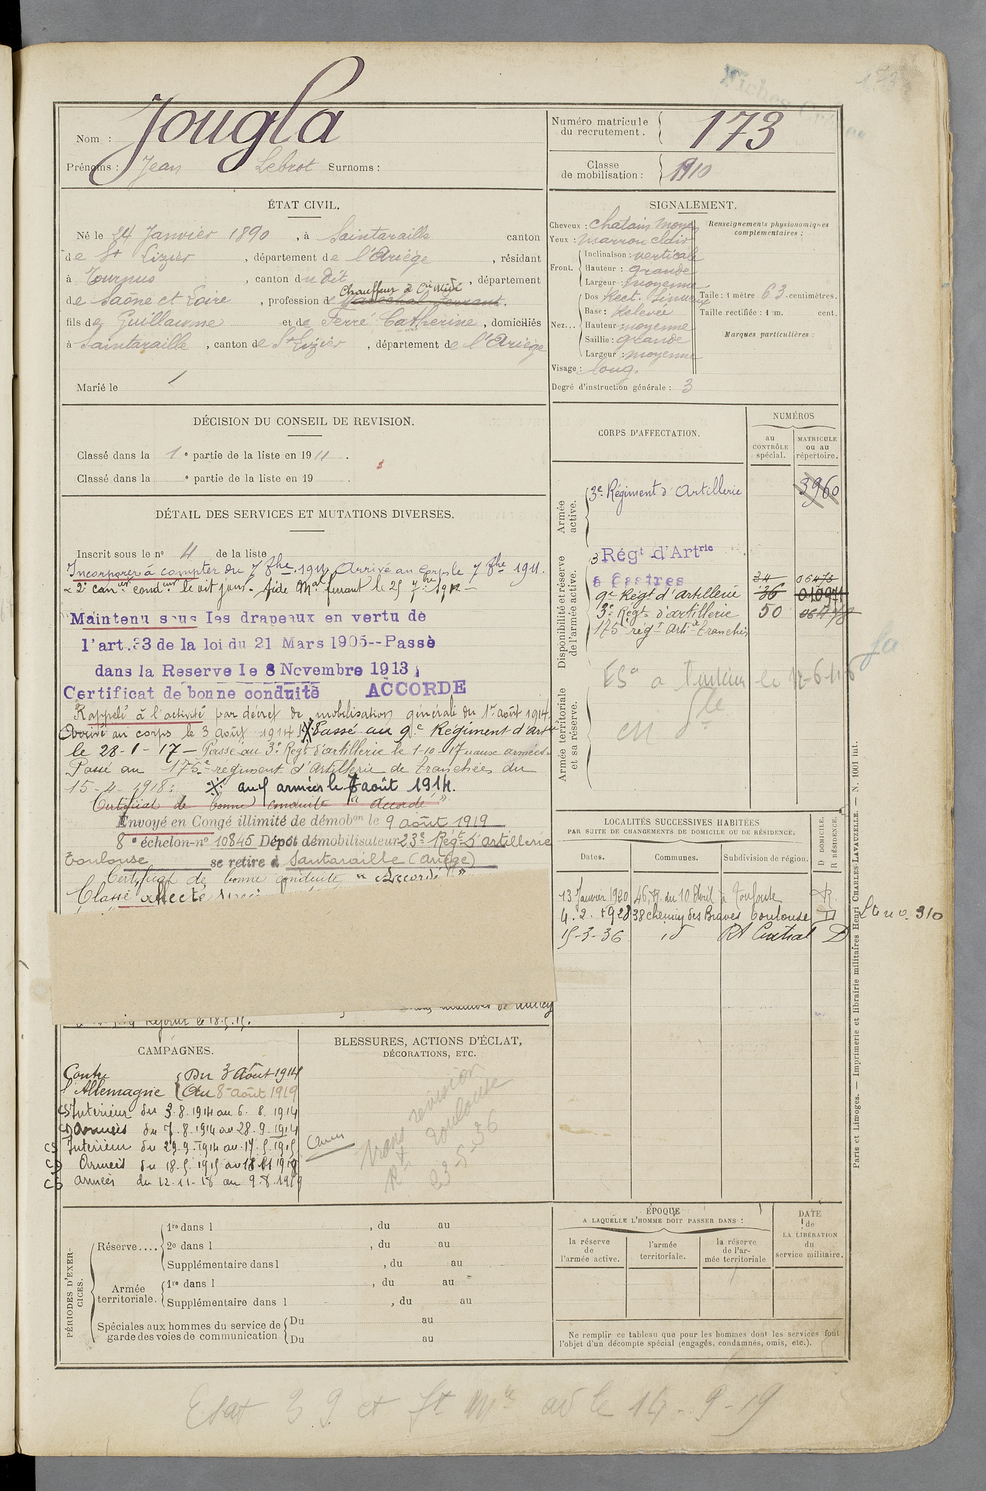 Nom : Jougla
Prénoms : Jean Surnoms :
Numéro matricule du recrutement. 173
Classe de mobilisation : 1910
ÉTAT CIVIL.
Né le 24 Janvier 1890, à Saintaraille canton
de St Lizier, département de l'Ariège, résidant
à Tournus, canton du dit, département
Chauffeur
de Saône et Loire, profession de Maréchal ferrant.
fils de Guillaume et de Ferré Catherine, domiciliés
à Saintaraille, canton de St Lizier, département de l'Ariège
Marié le
SIGNALEMENT.
Cheveux : chatain moyen
Yeux : marron clair
Front. Inclinaison : verticale
Hauteur : grande
Largeur : moyenne
Nez... Dos Rect. Sinueux
Base : Relevée
Hauteur moyenne
Saillie : grande
Largeur : moyenne
Visage : long.
Renseignements physionomiques complémentaires :
Taille : 1 mètre 63 centimètres.
Taille rectifiée : 1 m. cent.
Marques particulières :
Degré d'instruction générale : 3
DÉCISION DU CONSEIL DE REVISION.
Classé dans la 1e partie de la liste en 1911.
Classé dans la e partie de la liste en 19 .
DÉTAIL DES SERVICES ET MUTATIONS DIVERSES.
Inscrit sous le no 4 de la liste
Incorporé à compter du 7 8bre 1911, Arrivé au corps le 7 8bre 1911.
Maintenu sous les drapeaux en vertu de
l'art. 33 de la loi du 21 Mars 1905--Passé
dans la Reserve le 8 Novembre 1913
Certificat de bonne conduite ACCORDE
Rappelé à l'activité par décret de mobilisation générale du 1er août 1914
Arrivé au corps le 3 août 1914 Passé au 9e Régiment d'Artie
le 28-1-17 — Passé au 3e Regt d'artillerie le 1-10-17 aux armées.
Passé au 175e régiment d'Artillerie de tranchées du
15-4-1918: aux armées le 7 août 1914.
Certificat de bonne conduite "accordé"
Envoyé en Congé illimité de démobon le 9 août 1919
8e échelon-no 10845 Dépot démobilisateur 23e Régt d'artillerie
Toulouse se retire à Santaraille (Ariège)
Certificat de bonne conduite "Accordé"
Classé affecté
CORPS D'AFFECTATION.
NUMÉROS
au CONTRÔLE spécial.
MATRICULE OU AU répertoire.
Armée active.
3e Régiment d'Artillerie 3960
Disponibilité et réserve de l'armée active.
3 Régt d'Artrie
à Castres
9e Régt d'artillerie 36
3e Regt d'artillerie 50
175e regt Artie tranchées
Armée territoriale et sa réserve.
LOCALITÉS SUCCESSIVES HABITÉES
PAR SUITE DE CHANGEMENTS DE DOMICILE OU DE RÉSIDENCE.
Dates.
Communes.
Subdivision de région.
D DOMICILE. R RÉSIDENCE.
13 Janvier 1920 46, R. du 10 Avril à Toulouse R
4.2.1928 38 chemin des Braves Toulouse D
15-3-36 id Rt Central D
310
CAMPAGNES.
Contre l'Allemagne Du 3 Août 1914
Au 8 août 1919
CS Intérieur du 3.8.1914 au 6.8.1914
CD Armées du 7.8.1914 au 28.9.1914
CS Intérieur du 29.9.1914 au 17.5.1915
CD Armées du 18.5.1915 au 11.11.1918
CS armées du 12-11-18 au 9-8-1919
BLESSURES, ACTIONS D'ÉCLAT,
DÉCORATIONS, ETC.
Toulouse
23-5-36
PÉRIODES D'EXERCICES.
Réserve.... 1re dans l , du au
2e dans l , du au
Supplémentaire dans l , du au
Armée territoriale. 1re dans l , du au
Supplémentaire dans l , du au
Spéciales aux hommes du service de garde des voies de communication Du au
Du au
ÉPOQUE
A LAQUELLE L'HOMME DOIT PASSER DANS :
la réserve de l'armée active.
l'armée territoriale.
la réserve de l'armée territoriale
DATE de LA LIBÉRATION du service militaire.
Ne remplir ce tableau que pour les hommes dont les services font
l'objet d'un décompte spécial (engagés, condamnés, omis, etc.).
Paris et Limoges. — Imprimerie et librairie militaires Henri CHARLES-LAVAUZELLE. — N. 1001 int.
Etat 3 9 et le 14-9-19